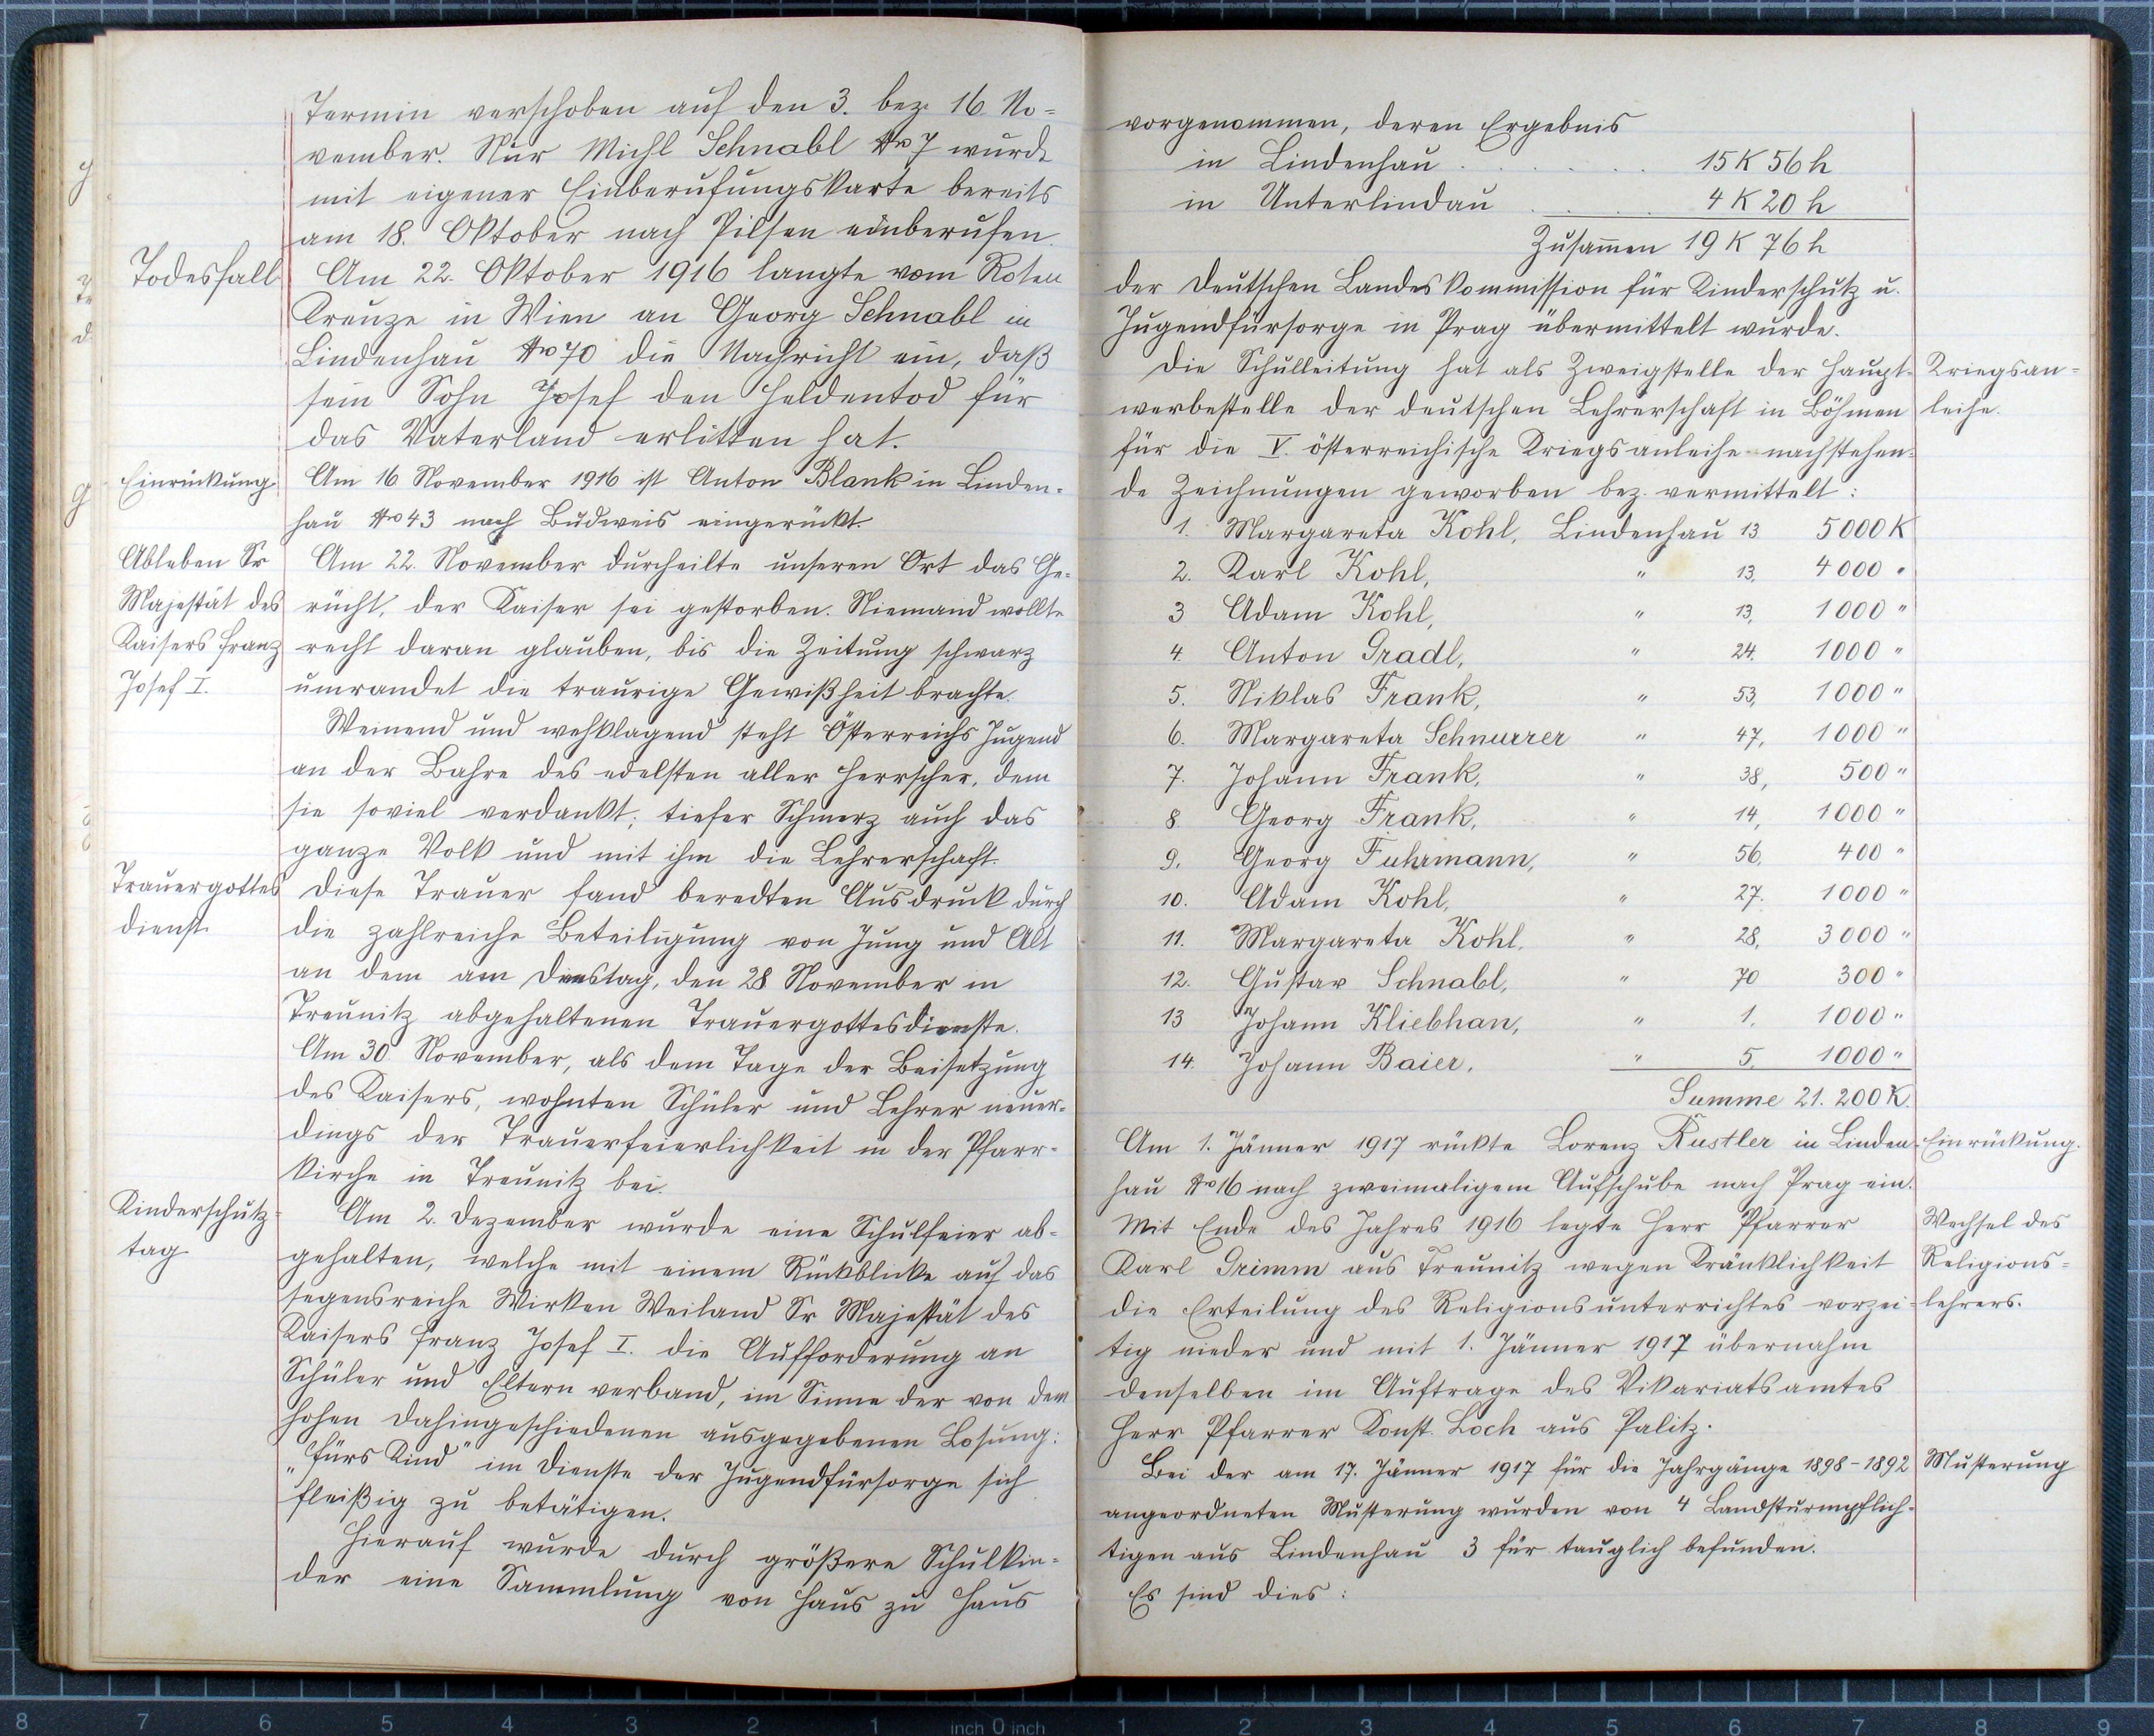 Termin verschoben auf den 3. bez. 16. No=
vember. Nur Michl Schnabl No 7 wurde
mit eigener Einberufungskarte bereits
am 18. Oktober nach Pilsen einberufen.
Todesfall
Am 22. Oktober 1916 langte vom Roten
Kreuze in Wien an Georg Schnabl in
Lindenhau No 70 die Nachricht ein, daß
sein Sohn Josef den Heldentod für
das Vaterland erlitten hat.
Einrückung.
Am 16. November 1916 ist Anton Blank in Linden-
hau No 43 nach Budweis eingerückt.
Ableben Sr
Majestät des
Kaisers Franz
Josef I.
Am 22. November durcheilte unseren Ort das Ge-
rücht, der Kaiser sei gestorben. Niemand wollte
recht daran glauben, bis die Zeitung schwarz
umrandet die traurige Gewißheit brachte.
Weinend und wehklagend steht Österreichs Jugend
an der Bahre des edelsten aller Herrscher, dem
sie soviel verdankt; tiefer Schmerz auch das
ganze Volk und mit ihm die Lehrerschaft.
Trauergottes
dienst.
Diese Trauer fand beredten Ausdruck durch
die zahlreiche Beteiligung von Jung und Alt
an dem am Dienstag, den 28. November in
Treunitz abgehaltenen Trauergottesdienste.
Am 30. November, als dem Tage der Beisetzung
des Kaisers, wohnten Schüler und Lehrer neuer-
dings der Trauerfeierlichkeit in der Pfarr-
kirche in Treunitz bei.
Kinderschutz=
tag
Am 2. Dezember wurde eine Schulfeier ab-
gehalten, welche mit einem Rückblicke auf das
segensreiche Wirken Weiland Sr Majestät des
Kaisers Franz Josef I. die Aufforderung an
Schüler und Eltern verband, im Sinne der von dem
hohen Dahingeschiedenen ausgegebenen Losung:
"Fürs Kind" im Dienste der Jugendfürsorge sich
fleißig zu betätigen.
Hierauf wurde durch größere Schulkin-
der eine Sammlung von Haus zu Haus
vorgenommen, deren Ergebnis
in Lindenhau . . . . . 15 K 56 h
in Unterlindau . . . . 4 K 20 h
Zusammen 19 K 76 h
der Deutschen Landeskommission für Kinderschutz u.
Jugendfürsorge in Prag übermittelt wurde.
Die Schulleitung hat als Zweigstelle der Haupt-
werbestelle der deutschen Lehrerschaft in Böhmen
für die V. österreichische Kriegsanleihe nachstehen-
de Zeichnungen geworben bez. vermittelt:
Kriegsan=
leihe.
1. Margareta Kohl, Lindenhau 13 5000 K
2. Karl Kohl, " 13, 4000 "
3 Adam Kohl, " 13, 1000 "
4. Anton Gradl, " 24. 1000 "
5. Niklas Frank, " 53, 1000 "
6. Margareta Schnurrer " 47, 1000 "
7. Johann Frank, " 38, 500 "
8. Georg Frank, " 14, 1000 "
9. Georg Fuhrmann, " 56, 400 "
10. Adam Kohl, " 27. 1000 "
11. Margareta Kohl, " 28, 3000 "
12. Gustav Schnabl, " 70 300 "
13 Johann Kliebhan, " 1. 1000 "
14. Johann Baier, " 5. 1000 "
Summe 21.200 K.
Am 1. Jänner 1917 rückte Lorenz Rustler in Linden-
hau No 16 nach zweimaligem Aufschube nach Prag ein.
Einrückung.
Mit Ende des Jahres 1916 legte Herr Pfarrer
Karl Grimm aus Treunitz wegen Kränklichkeit
die Erteilung des Religionsunterrichtes vorzei-
tig nieder und mit 1. Jänner 1917 übernahm
denselben im Auftrage des Vikariatsamtes
Herr Pfarrer Konst. Loch aus Palitz.
Wechsel des
Religions=
lehrers.
Bei der am 17. Jänner 1917 für die Jahrgänge 1898-1892
angeordneten Musterung wurden von 4 Landsturmpflich-
tigen aus Lindenhau 3 für tauglich befunden.
Es sind dies:
Musterung
8 7 6 5 4 3 2 1 inch 0 inch 1 2 3 4 5 6 7 8 9